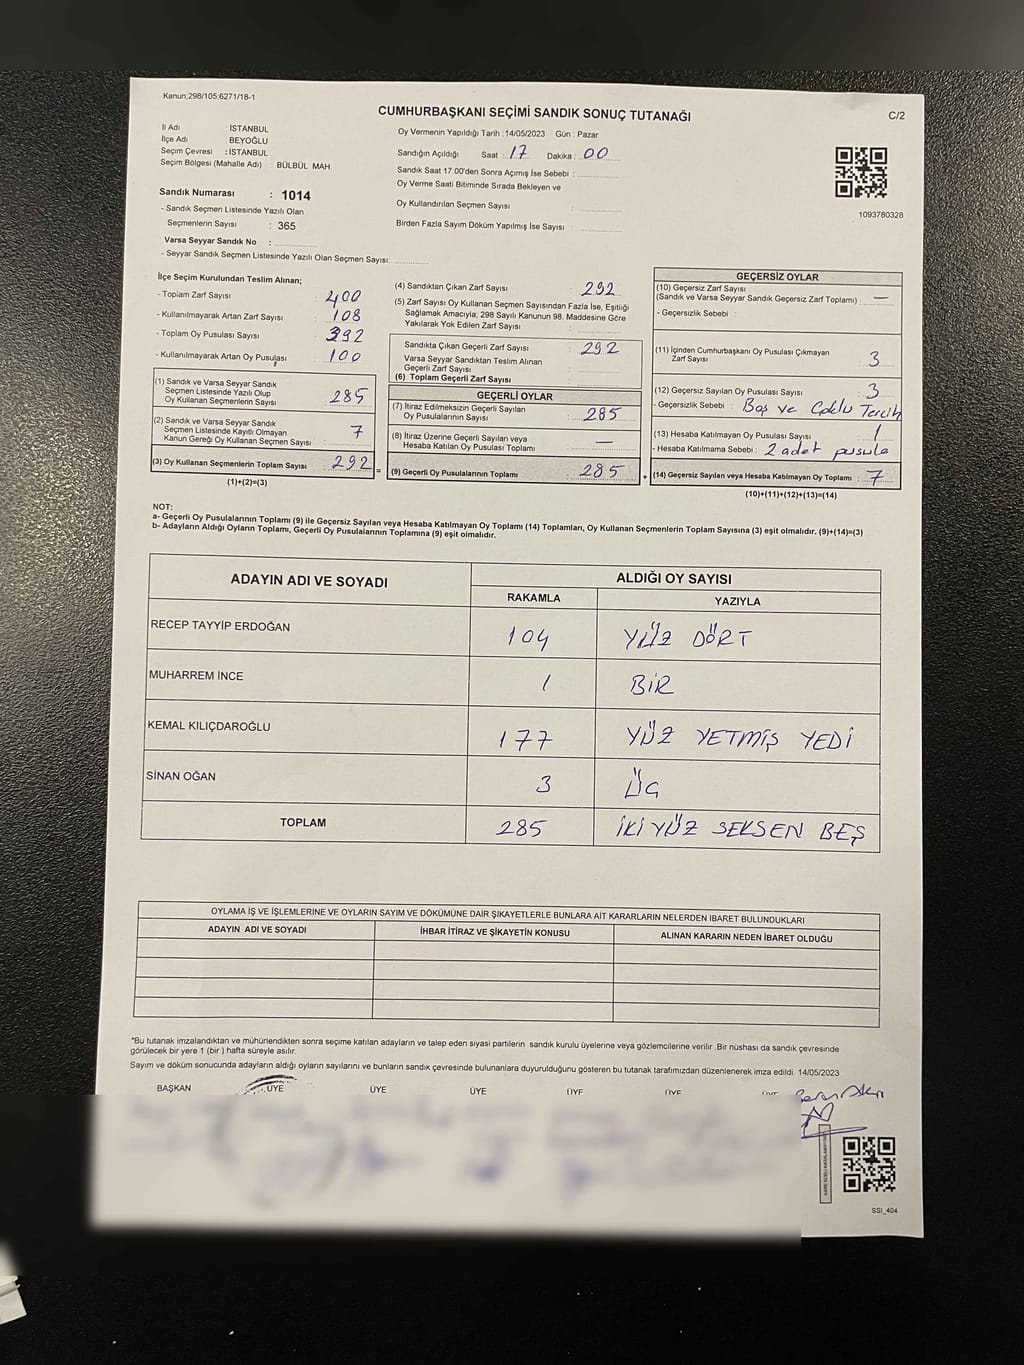 Kanun;298/105,6271/18-1
CUMHURBAŞKANI SEÇİMİ SANDIK SONUÇ TUTANAĞI
C/2
İl Adı : İSTANBUL
İlçe Adı : BEYOĞLU
Seçim Çevresi : İSTANBUL
Seçim Bölgesi (Mahalle Adı) : BÜLBÜL MAH
Sandık Numarası : 1014
- Sandık Seçmen Listesinde Yazılı Olan
Seçmenlerin Sayısı : 365
Varsa Seyyar Sandık No :
- Seyyar Sandık Seçmen Listesinde Yazılı Olan Seçmen Sayısı:
Oy Vermenin Yapıldığı Tarih :14/05/2023 Gün : Pazar
Sandığın Açıldığı Saat : 17 Dakika : 00
Sandık Saat 17.00'den Sonra Açımış İse Sebebi :
Oy Verme Saati Bitiminde Sırada Bekleyen ve
Oy Kullandırılan Seçmen Sayısı :
Birden Fazla Sayım Döküm Yapılmış İse Sayısı :
1093780328
İlçe Seçim Kurulundan Teslim Alınan;
- Toplam Zarf Sayısı : 400
- Kullanılmayarak Artan Zarf Sayısı : 108
- Toplam Oy Pusulası Sayısı : 392
- Kullanılmayarak Artan Oy Pusulası : 100
(1) Sandık ve Varsa Seyyar Sandık
Seçmen Listesinde Yazılı Olup
Oy Kullanan Seçmenlerin Sayısı : 285
(2) Sandık ve Varsa Seyyar Sandık
Seçmen Listesinde Kayıtlı Olmayan
Kanun Gereği Oy Kullanan Seçmen Sayısı : 7
(3) Oy Kullanan Seçmenlerin Toplam Sayısı : 292
(1)+(2)=(3)
(4) Sandıktan Çıkan Zarf Sayısı : 292
(5) Zarf Sayısı Oy Kullanan Seçmen Sayısından Fazla İse, Eşitliği
Sağlamak Amacıyla; 298 Sayılı Kanunun 98. Maddesine Göre
Yakılarak Yok Edilen Zarf Sayısı :
Sandıkta Çıkan Geçerli Zarf Sayısı : 292
Varsa Seyyar Sandıktan Teslim Alınan
Geçerli Zarf Sayısı :
(6) Toplam Geçerli Zarf Sayısı :
GEÇERLİ OYLAR
(7) İtiraz Edilmeksizin Geçerli Sayılan
Oy Pusulalarının Sayısı : 285
(8) İtiraz Üzerine Geçerli Sayılan veya
Hesaba Katılan Oy Pusulası Toplamı : —
(9) Geçerli Oy Pusulalarının Toplamı : 285
GEÇERSİZ OYLAR
(10) Geçersiz Zarf Sayısı
(Sandık ve Varsa Seyyar Sandık Geçersiz Zarf Toplamı) : —
- Geçersizlik Sebebi :
(11) İçinden Cumhurbaşkanı Oy Pusulası Çıkmayan
Zarf Sayısı : 3
(12) Geçersiz Sayılan Oy Pusulası Sayısı : 3
- Geçersizlik Sebebi : Boş ve Çoklu Tercih
(13) Hesaba Katılmayan Oy Pusulası Sayısı : 1
- Hesaba Katılmama Sebebi : 2 adet pusula
(14) Geçersiz Sayılan veya Hesaba Katılmayan Oy Toplamı : 7
(10)+(11)+(12)+(13)=(14)
NOT:
a- Geçerli Oy Pusulalarının Toplamı (9) ile Geçersiz Sayılan veya Hesaba Katılmayan Oy Toplamı (14) Toplamları, Oy Kullanan Seçmenlerin Toplam Sayısına (3) eşit olmalıdır. (9)+(14)=(3)
b- Adayların Aldığı Oyların Toplamı, Geçerli Oy Pusulalarının Toplamına (9) eşit olmalıdır.
ADAYIN ADI VE SOYADI ALDIĞI OY SAYISI
RAKAMLA YAZIYLA
RECEP TAYYİP ERDOĞAN 104 YÜZ DÖRT
MUHARREM İNCE 1 BİR
KEMAL KILIÇDAROĞLU 177 YÜZ YETMİŞ YEDİ
SİNAN OĞAN 3 ÜÇ
TOPLAM 285 İKİ YÜZ SEKSEN BEŞ
OYLAMA İŞ VE İŞLEMLERINE VE OYLARIN SAYIM VE DÖKÜMÜNE DAİR ŞİKAYETLERLE BUNLARA AİT KARARLARIN NELERDEN IBARET BULUNDUKLARI
ADAYIN ADI VE SOYADI İHBAR İTİRAZ VE ŞİKAYETİN KONUSU ALINAN KARARIN NEDEN İBARET OLDUĞU
*Bu tutanak imzalandıktan ve mühürlendikten sonra seçime katılan adayların ve talep eden siyasi partilerin sandık kurulu üyelerine veya gözlemcilerine verilir .Bir nüshası da sandık çevresinde
görülecek bir yere 1 (bir ) hafta süreyle asılır.
Sayım ve döküm sonucunda adayların aldığı oyların sayılarını ve bunların sandık çevresinde bulunanlara duyurulduğunu gösteren bu tutanak tarafımızdan düzenlenerek imza edildi. 14/05/2023
BAŞKAN ÜYE ÜYE ÜYE ÜYE ÜYE ÜYE
SSI_404